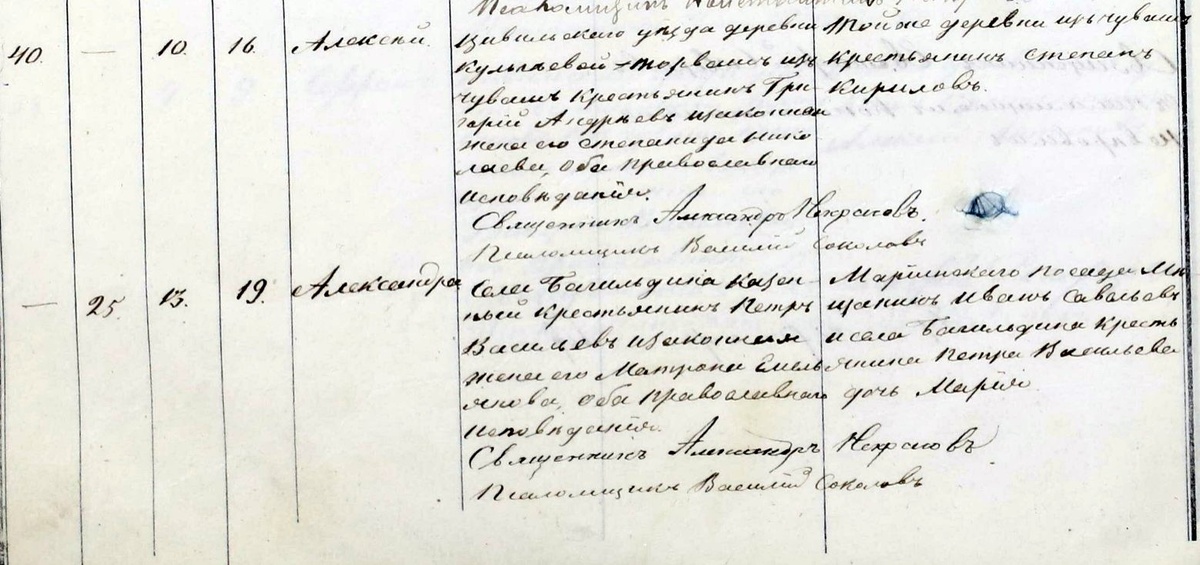 Псаломщикъ
40. — 10. 16. Алексѣй.
Цивильскаго уѣзда деревни
Кульгѣевой-Торваш изъ
чувашъ крестьянинъ Гри-
горій Андреевъ и законная
жена его Степанида Нико-
лаева, оба православнаго
исповѣданія.
Тойже деревни изъ чувашъ
крестьянинъ Степанъ
Кириловъ.
Священникъ Александръ Некрасовъ.
Псаломщикъ Василій Соколовъ
— 25. 13. 19. Александра
Села Багильдина казен-
ный крестьянинъ Петръ
Васильевъ и законная
жена его Матрона Емель
янова, оба православнаго
исповѣданія.
Маріинскаго посада Мѣ
щанинъ Иванъ Савельевъ
и села Багильдина кресть
янина Петра Васильева
дочь Марія
Священникъ Александръ Некрасовъ
Псаломщикъ Василій Соколовъ